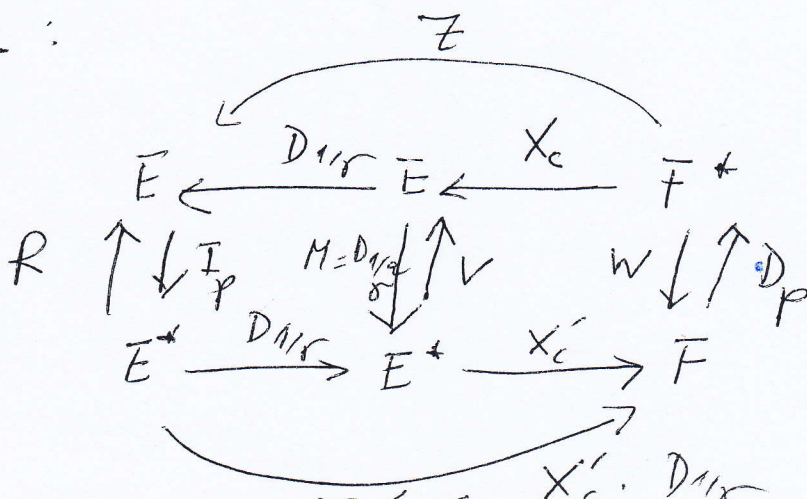 :
Z
E D1/σ E Xc F*
R Ip M=D1/σ² V W Dp
E* D1/σ E* X'c F
X'c . D1/σ